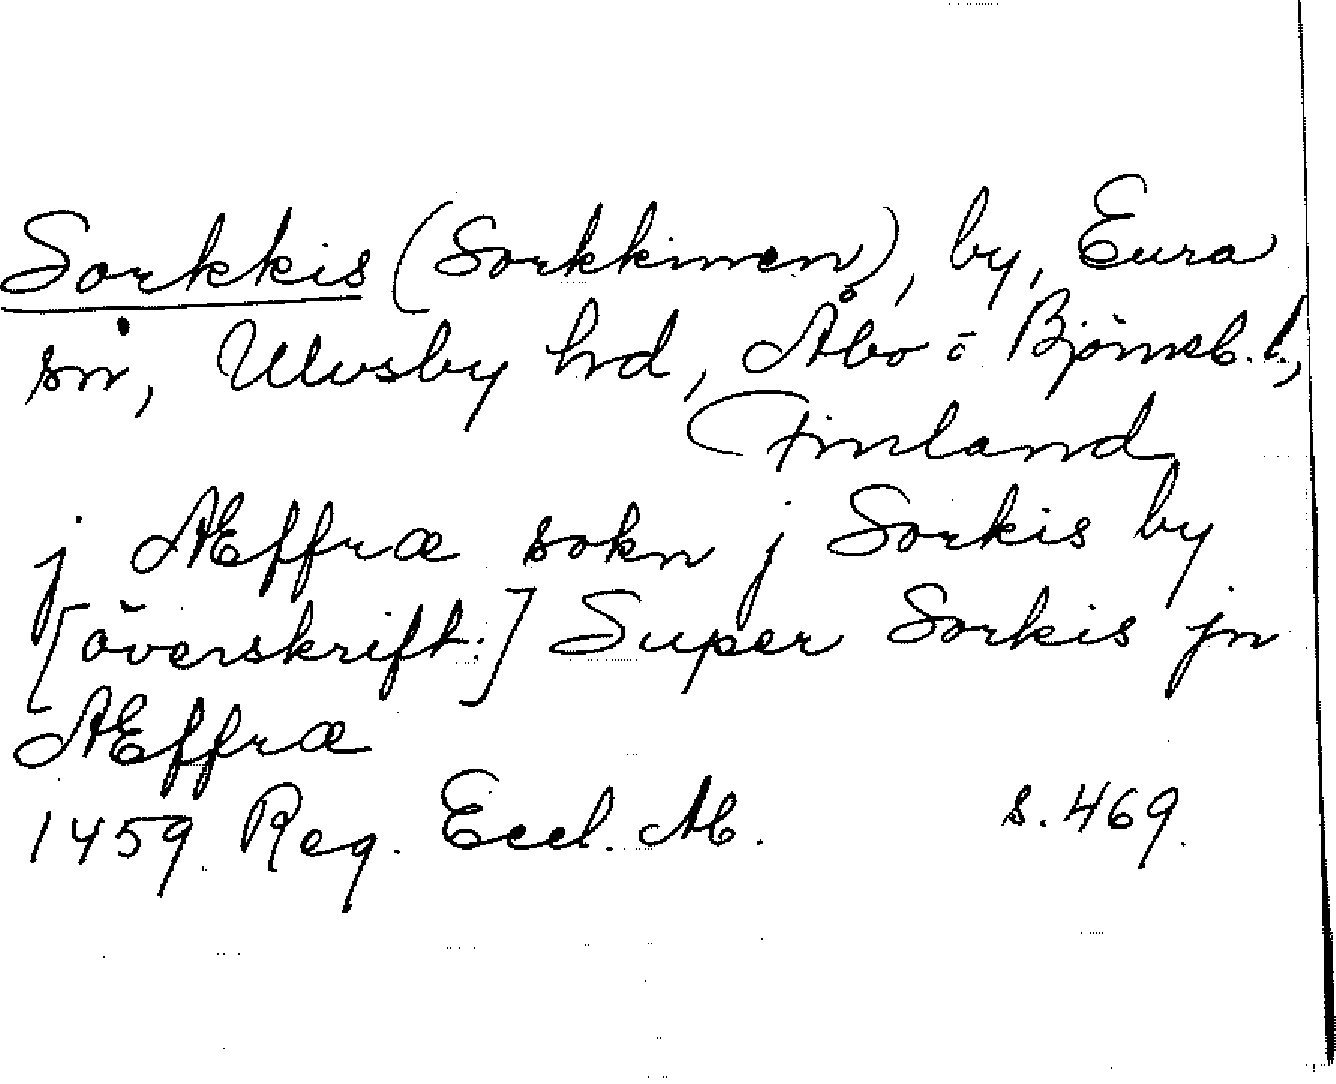 Sorkkis (Sorkkinen), by, Eura
sn, Ulvsby hd, Åbo o Björneb. l.,
Finland
j Æffræ sokn j Sorkis by
[överskrift:] Super Sorkis jn
Æffræ
1459. Reg. Eccl. Ab. s. 469.